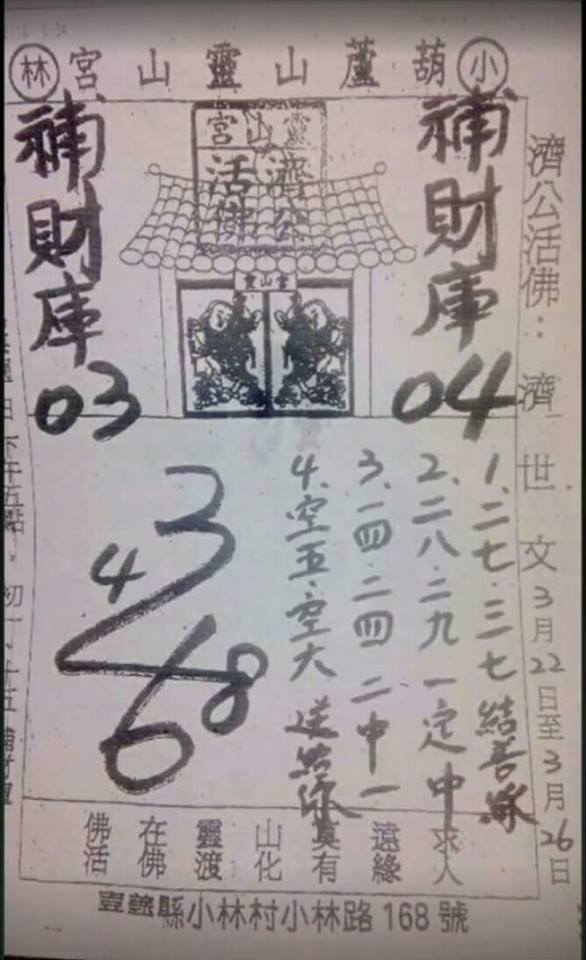 小 葫蘆山靈山宮 林
靈山宮
濟公
活佛
靈山宮
補財庫
04
補財庫
03
濟公活佛：濟世文 3月22日至3月26日
1、二七·三七 結善緣
2、二八·二九 一定中
3、一四·二四 二中一
4、空五·空六 送給你
3
4
6
8
日下午五點，初一、十五補財庫
佛在靈山莫遠求
活佛渡化有緣人
縣小林村小林路168號